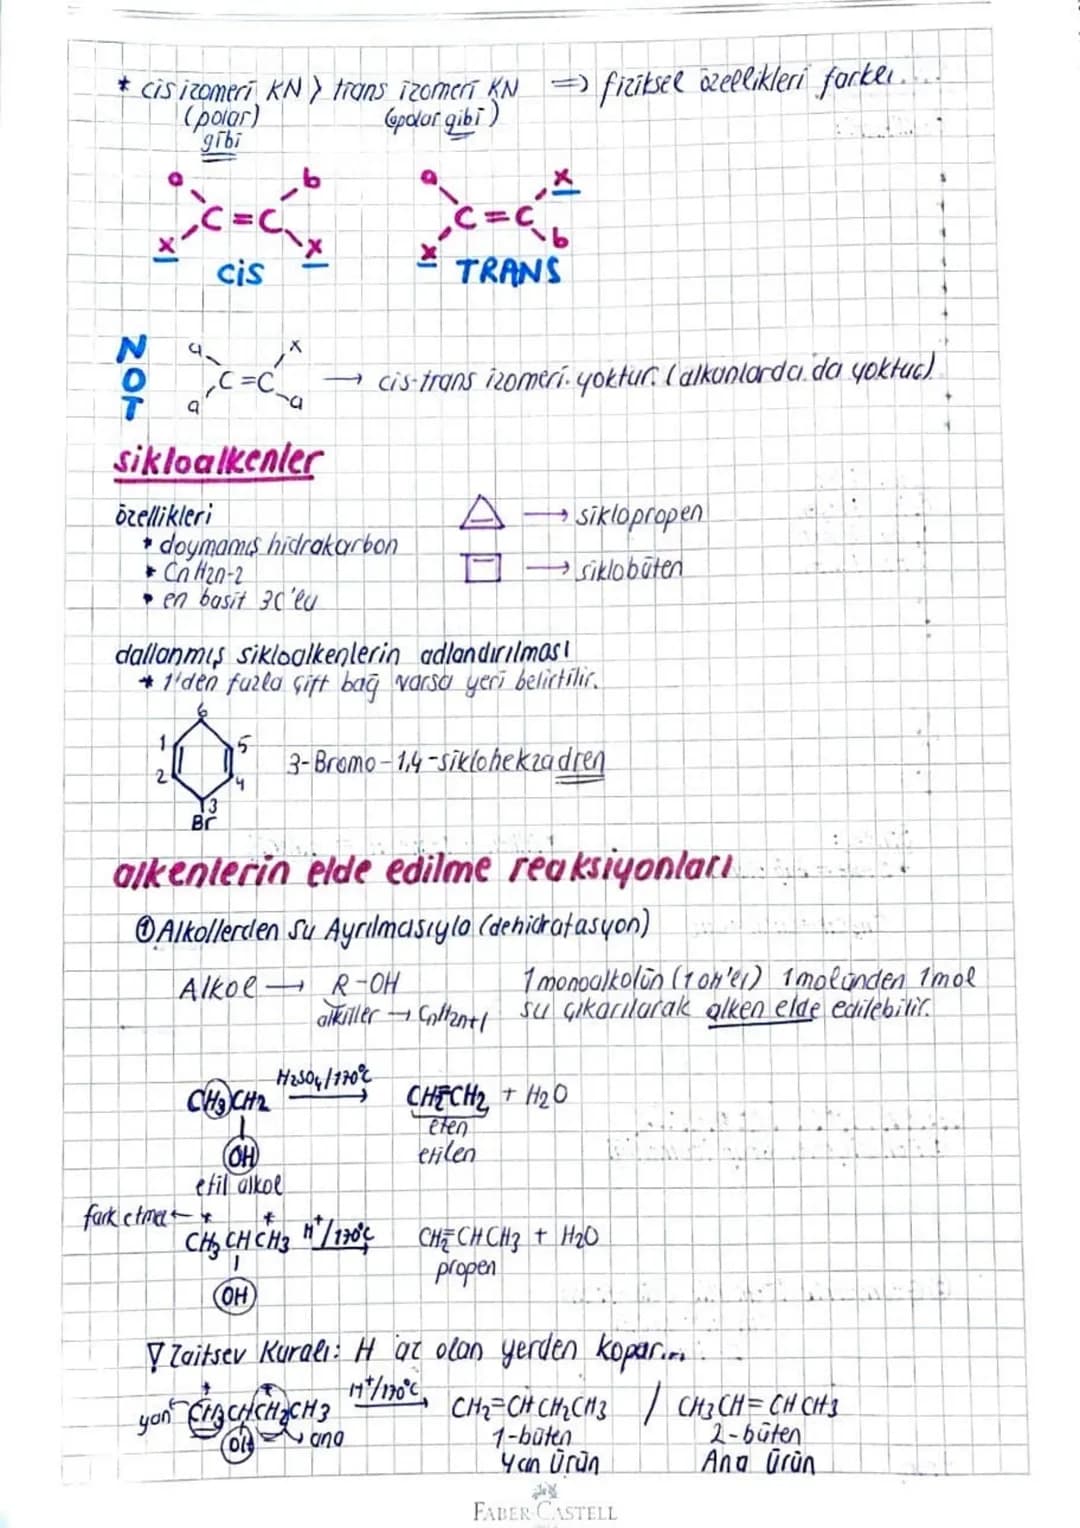 * cis izomeri KN > trans izomeri KN => fiziksel özellikleri farklı....
(polar) (apolar gibi)
gibi
a b a x
C=C C=C
x x x b
cis TRANS
NOT
a x
C=C → cis-trans izomeri yoktur. (alkanlarda da yoktur)
a a
sikloalkenler
özellikleri → siklopropen
* doymamış hidrokarbon
* CnH2n-2 → siklobüten
* en basit 3C'lu
dallanmış sikloalkenlerin adlandırılması
* 1'den fazla çift bağ varsa yeri belirtilir.
6
1 5
2 4
3-Bromo-1,4-siklohekzadien
3
Br
alkenlerin elde edilme reaksiyonları
① Alkollerden Su Ayrılmasıyla (dehidratasyon)
Alkol → R-OH 1 monoalkolün (1 OH'ei) 1 molünden 1 mol
alkiller → CnH2n+1 su çıkarılarak alken elde edilebilir.
CH3CH2 H2SO4/170°C CH2=CH2 + H2O
OH eten
etilen
etil alkol
fark etmez ← * *
CH3CHCH3 H+/170°C CH2=CHCH3 + H2O
OH propen
∇ Zaitsev Kuralı: H az olan yerden kopar...
yan CH3CHCH2CH3 H+/170°C CH2=CHCH2CH3 / CH3CH=CHCH3
OH → ana 1-büten 2-büten
Yan Ürün Ana Ürün
FABER-CASTELL